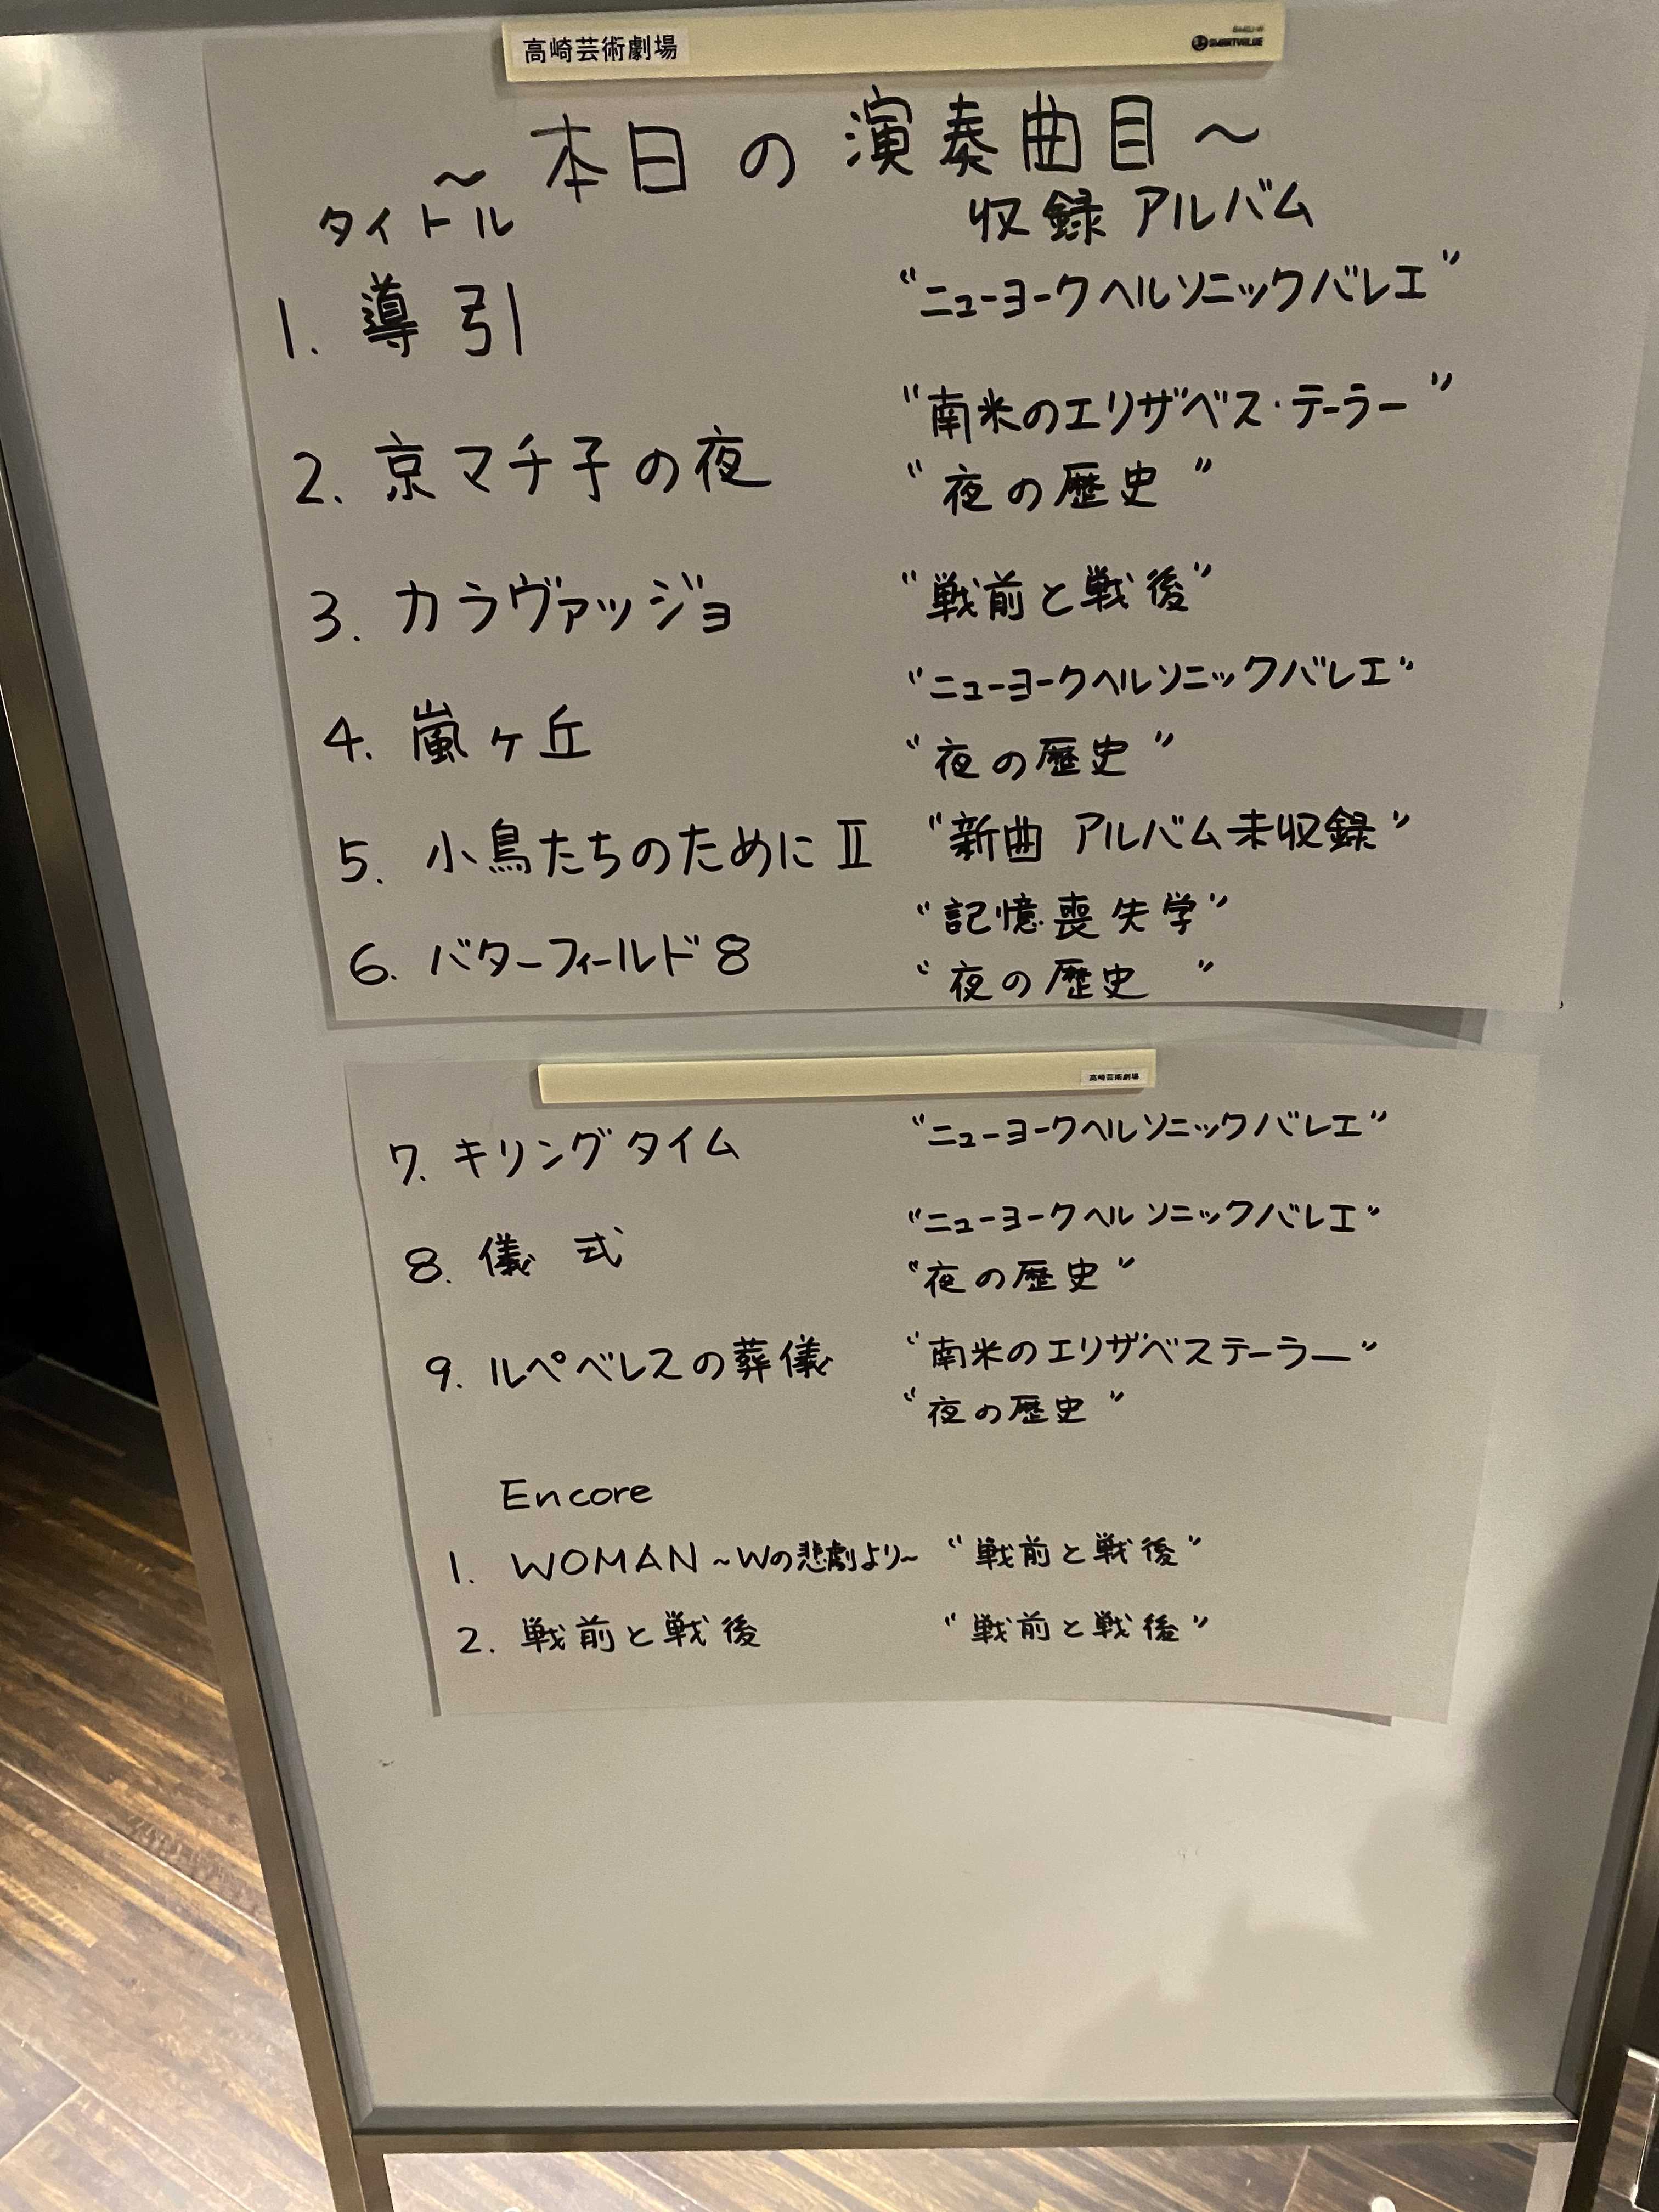 高崎芸術劇場
～本日の演奏曲目～
タイトル 収録アルバム
1. 導引 “ニューヨークヘルソニックバレエ”
“南米のエリザベス・テーラー”
2. 京マチ子の夜 “夜の歴史”
3. カラヴァッジョ “戦前と戦後”
“ニューヨークヘルソニックバレエ”
4. 嵐ヶ丘 “夜の歴史”
5. 小鳥たちのためにⅡ “新曲 アルバム未収録”
“記憶喪失学”
6. バターフィールド8 “夜の歴史”
高崎芸術劇場
7. キリングタイム “ニューヨークヘルソニックバレエ”
“ニューヨークヘルソニックバレエ”
8. 儀式 “夜の歴史”
9. ルペベレスの葬儀 “南米のエリザベステーラー”
“夜の歴史”
Encore
1. WOMAN ～Wの悲劇より～ “戦前と戦後”
2. 戦前と戦後 “戦前と戦後”